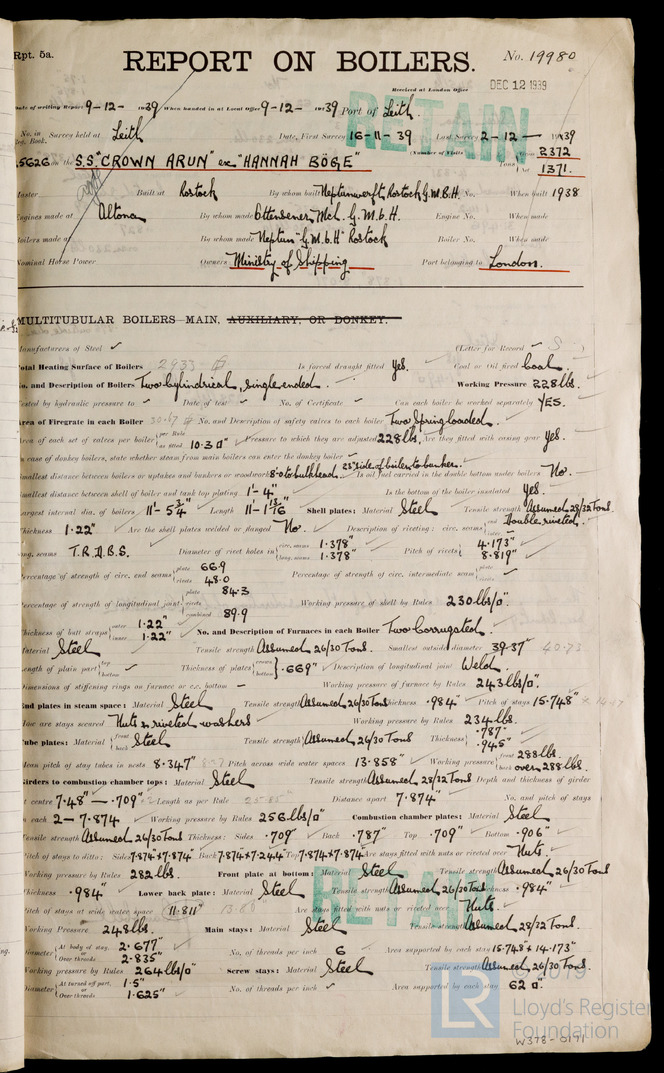 Rpt. 5a.
REPORT ON BOILERS.
No. 19980
Received at London Office
DEC 12 1939
RETAIN
Date of writing Report 9-12- 1939 When handed in at Local Office 9-12- 1939 Port of Leith.
No. in Reg. Book. Survey held at Leith Date, First Survey 16-11-39 Last Survey 2-12- 1939
(Number of Visits
15626 on the S.S "CROWN ARUN" ex "HANNAH BÖGE" Tons Gross 2372 Net 1371.
Master Built at Rostock By whom built Neptunwerft, Rostock G.M.B.H. No. When built 1938
Engines made at Altona By whom made Ottensener Mch. G.M.b.H. Engine No. When made
Boilers made at By whom made Neptun "G.M.b.H" Rostock Boiler No. When made
Nominal Horse Power Owners Ministry of Shipping Port belonging to London.
MULTITUBULAR BOILERS MAIN, AUXILIARY, OR DONKEY.
Manufacturers of Steel ✓ (Letter for Record S)
Total Heating Surface of Boilers 2933 Is forced draught fitted Yes. Coal or Oil fired Coal
No. and Description of Boilers Two cylindrical, single ended. Working Pressure 228 lbs.
Tested by hydraulic pressure to Date of test No. of Certificate Can each boiler be worked separately YES.
Area of Firegrate in each Boiler 30.67 No. and Description of safety valves to each boiler Two Spring loaded.
Area of each set of valves per boiler {per Rule as fitted 10.30" Pressure to which they are adjusted 228 lbs. Are they fitted with easing gear Yes.
In case of donkey boilers, state whether steam from main boilers can enter the donkey boiler
Smallest distance between boilers or uptakes and bunkers or woodwork 8.0 to bulkhead. 25" side of boiler to bunker. Is oil fuel carried in the double bottom under boilers No.
Smallest distance between shell of boiler and tank top plating 1'-4" Is the bottom of the boiler insulated Yes.
Largest internal dia. of boilers 11'-5 3/4" Length 11'-1 13/16" Shell plates: Material Steel Tensile strength Assumed 28/32 Tons.
Thickness 1.22" Are the shell plates welded or flanged No. Description of riveting: circ. seams {end Double riveted. inter.
long. seams T.R.D.B.S. Diameter of rivet holes in {circ. seams 1.378" long. seams 1.378" Pitch of rivets {4.173" 8.819"
Percentage of strength of circ. end seams {plate 66.9 rivets 48.0 Percentage of strength of circ. intermediate seam {plate rivets
Percentage of strength of longitudinal joint {plate 84.3 rivets combined 89.9 Working pressure of shell by Rules 230 lbs/□".
Thickness of butt straps {outer 1.22" inner 1.22" No. and Description of Furnaces in each Boiler Two corrugated.
Material Steel Tensile strength Assumed 26/30 Tons. Smallest outside diameter 39.37" 40.73
Length of plain part {top bottom Thickness of plates {crown bottom} .669" Description of longitudinal joint Weld.
Dimensions of stiffening rings on furnace or c.c. bottom Working pressure of furnace by Rules 243 lbs/□".
End plates in steam space: Material Steel Tensile strength Assumed 26/30 Tons Thickness .984" Pitch of stays 15.748"
How are stays secured Nuts & riveted washers Working pressure by Rules 234 lbs.
Tube plates: Material {front back Steel Tensile strength Assumed 26/30 Tons Thickness {.787" .945"
Mean pitch of stay tubes in nests 8.347" Pitch across wide water spaces 13.858" Working pressure {front 288 lbs back over 288 lbs.
Girders to combustion chamber tops: Material Steel Tensile strength Assumed 28/32 Tons Depth and thickness of girder
at centre 7.48" — .709" Length as per Rule Distance apart 7.874" No. and pitch of stays
in each 2 - 7.874 Working pressure by Rules 256 lbs/□" Combustion chamber plates: Material Steel
Tensile strength Assumed 26/30 Tons Thickness: Sides .709" Back .787" Top .709" Bottom .906"
Pitch of stays to ditto: Sides 7.874 x 7.874 Back 7.874 x 7.244 Top 7.874 x 7.874 Are stays fitted with nuts or riveted over Nuts.
Working pressure by Rules 282 lbs. Front plate at bottom: Material Steel Tensile strength Assumed 26/30 Tons
Thickness .984" Lower back plate: Material Steel Tensile strength Assumed 26/30 Tons Thickness .984"
Pitch of stays at wide water space 11.811" 13.80 Are stays fitted with nuts or riveted over Nuts.
Working Pressure 248 lbs. Main stays: Material Steel Tensile strength Assumed 28/32 Tons.
Diameter {At body of stay, 2.677" or Over threads 2.835" No. of threads per inch 6 Area supported by each stay 15.748 x 14.173"
Working pressure by Rules 264 lbs/□" Screw stays: Material Steel Tensile strength Assumed 26/30 Tons.
Diameter {At turned off part, 1.5" or Over threads 1.625" No. of threads per inch ✓ Area supported by each stay 62 □".
RETAIN
© 2019
LR
Lloyd's Register
Foundation
W378-0191